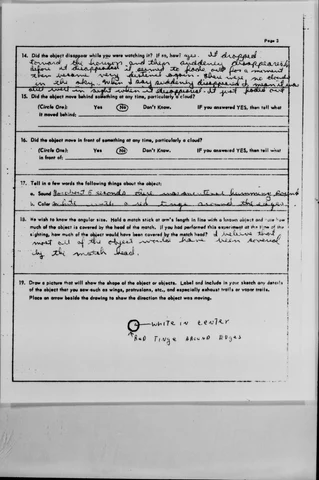 Page 3
14. Did the object disappear while you were watching it? If so, how? yes. it dropped
toward the horizon and then suddenly disappeared
before it disappeared it seemed to fade out for a moment
then became very distinct again. There were no clouds
in the sky. When I say suddenly disappeared it
was still in sight when it disappeared. It just faded out
15. Did the object move behind something at any time, particularly a cloud?
(Circle One): Yes No Don't Know. IF you answered YES, then tell what
it moved behind:
16. Did the object move in front of something at any time, particularly a cloud?
(Circle One): Yes No Don't Know. IF you answered YES, then tell what
in front of:
17. Tell in a few words the following things about the object:
a. Sound for about 5 seconds there was one humming sound
b. Color white with a red tinge around the edges.
18. We wish to know the angular size. Hold a match stick at arm's length in line with a known object and note how
much of the object is covered by the head of the match. If you had performed this experiment at the time of the
sighting, how much of the object would have been covered by the match head? I believe that
most all of the object would have been covered
by the match head.
19. Draw a picture that will show the shape of the object or objects. Label and include in your sketch any details
of the object that you saw such as wings, protrusions, etc., and especially exhaust trails or vapor trails.
Place an arrow beside the drawing to show the direction the object was moving.
WHITE IN CENTER
RED TINGE AROUND EDGES